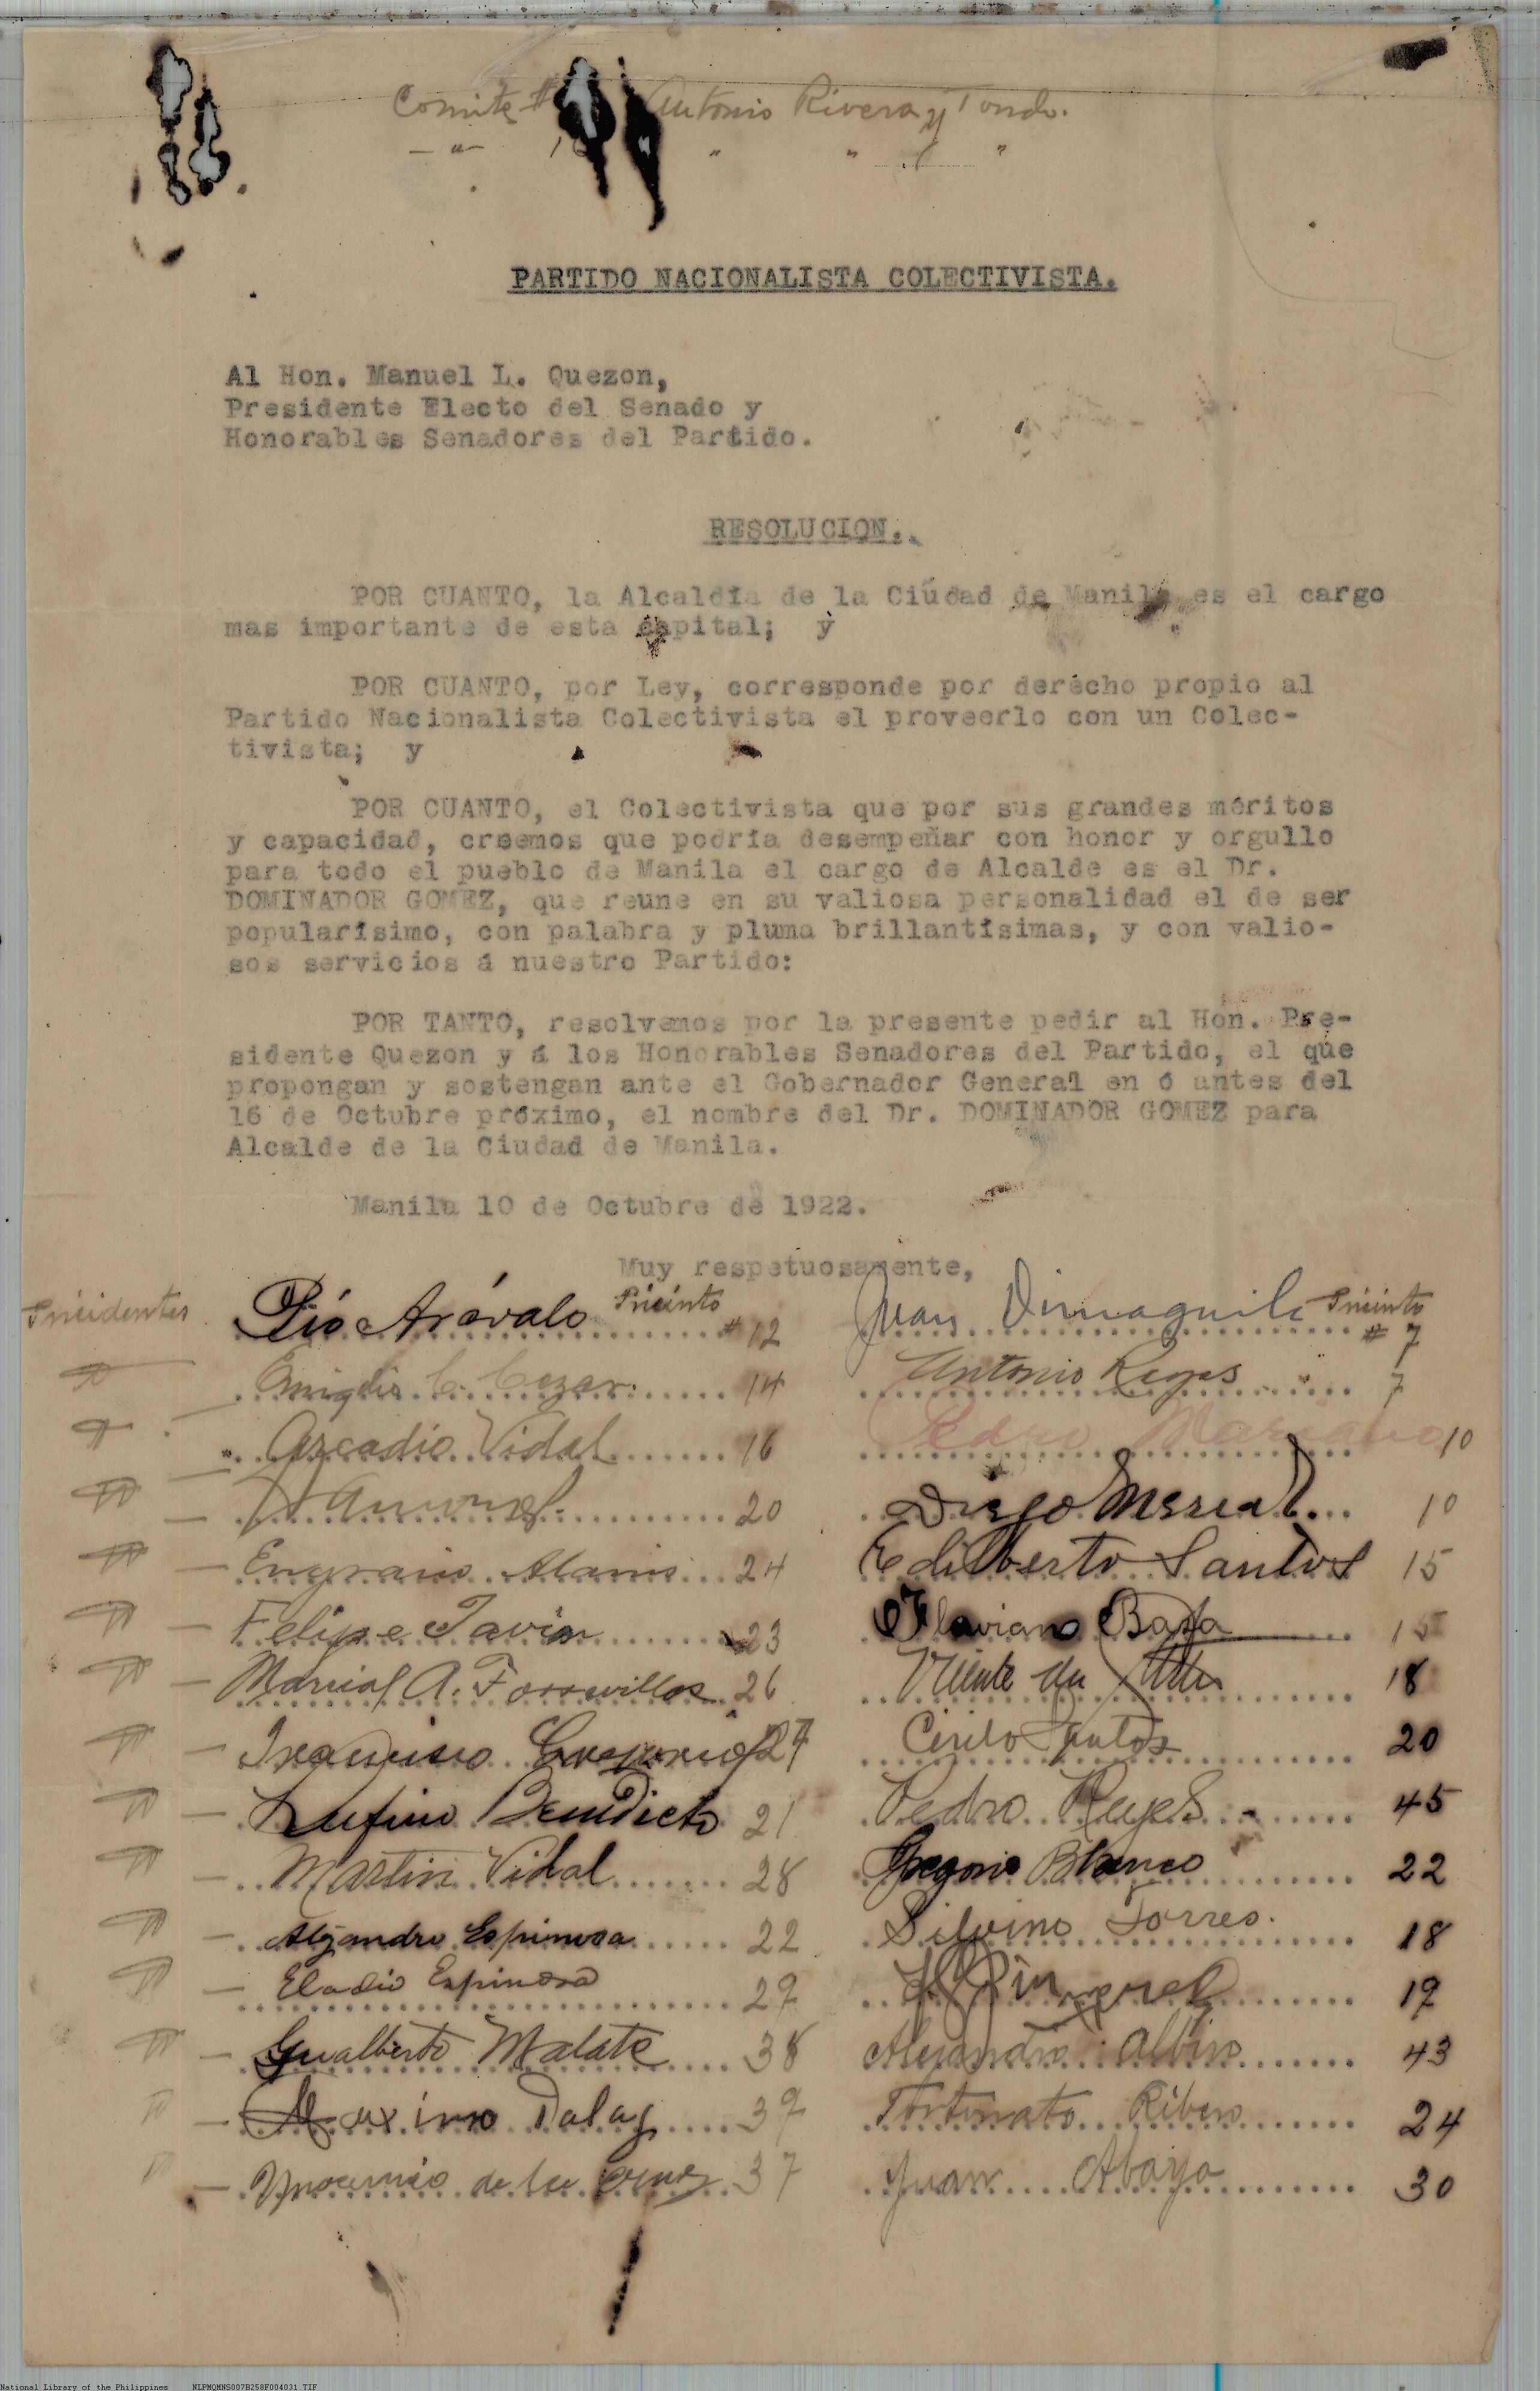 Comite # Antonio Rivera y Tondo.
— " — " " "
PARTIDO NACIONALISTA COLECTIVISTA.
Al Hon. Manuel L. Quezon,
Presidente Electo del Senado y
Honorables Senadores del Partido.
RESOLUCION.
POR CUANTO, la Alcaldía de la Ciúdad de Manila es el cargo
mas importante de esta Capital; y
POR CUANTO, por Ley, corresponde por derécho propio al
Partido Nacionalista Colectivista el proveerlo con un Colec-
tivista; y
POR CUANTO, el Colectivista que por sus grandes méritos
y capacidad, creemos que podría desempeñar con honor y orgullo
para todo el pueblo de Manila el cargo de Alcalde es el Dr.
DOMINADOR GOMEZ, que reune en su valiosa personalidad el de ser
popularísimo, con palabra y pluma brillantísimas, y con valio-
sos servicios á nuestro Partido:
POR TANTO, resolvemos por la presente pedir al Hon. Pre-
sidente Quezon y á los Honorables Senadores del Partido, el que
propongan y sostengan ante el Gobernador General en ó antes del
16 de Octubre próximo, el nombre del Dr. DOMINADOR GOMEZ para
Alcalde de la Ciudad de Manila.
Manila 10 de Octubre de 1922.
Muy respetuosamente,
Presidentes Pió Arévalo Precinto #12 Juan Dimaguila Precinto # 7
C. Cezar 14 Antonio Reyes 7
Arcadio Vidal 16 Pedro Mariano 10
20 Diego 10
24 Edilberto Santos 15
Felipe Tavin 23 Flaviano Basa 15
Marcial A. 26 Vicente 18
Francisco Gregorio 27 Cirilo Santos 20
Rufino Benedicto 21 Pedro Reyes 45
Martin Vidal 28 Gregorio Blanco 22
Alejandro Espinosa 22 Silvino Torres. 18
Eladio Espinosa 29 19
Gualberto Malate 38 Alejandro Albino 43
Maximo Dalag 39 Fortunato Ribero 24
de la Cruz 37 Juan Abaya 30
National Library of the Philippines NLPMQMNS007B258F004031.TIF